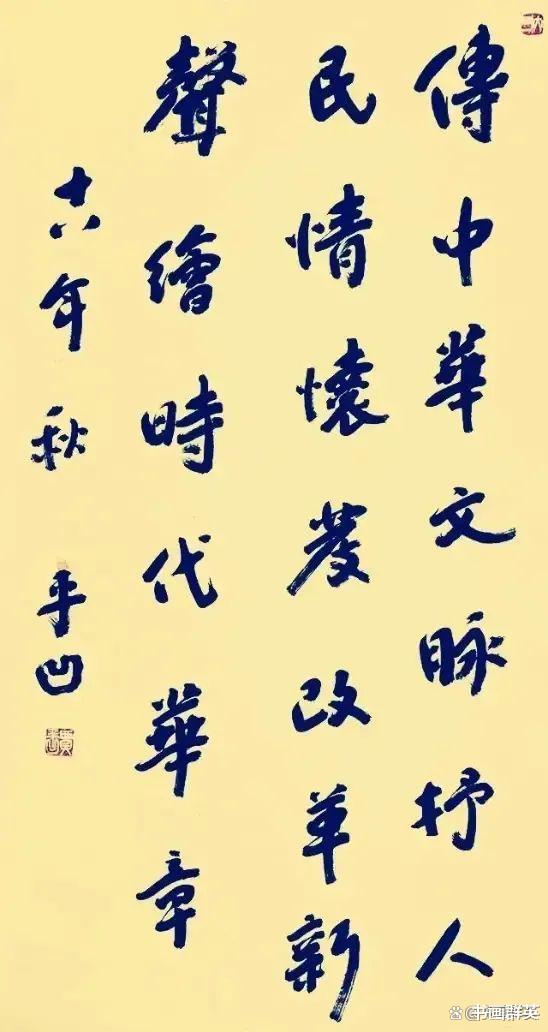 傳中華文脉抒人
民情懷發改革新
聲繪時代華章
十八年秋 平凹
書画群英